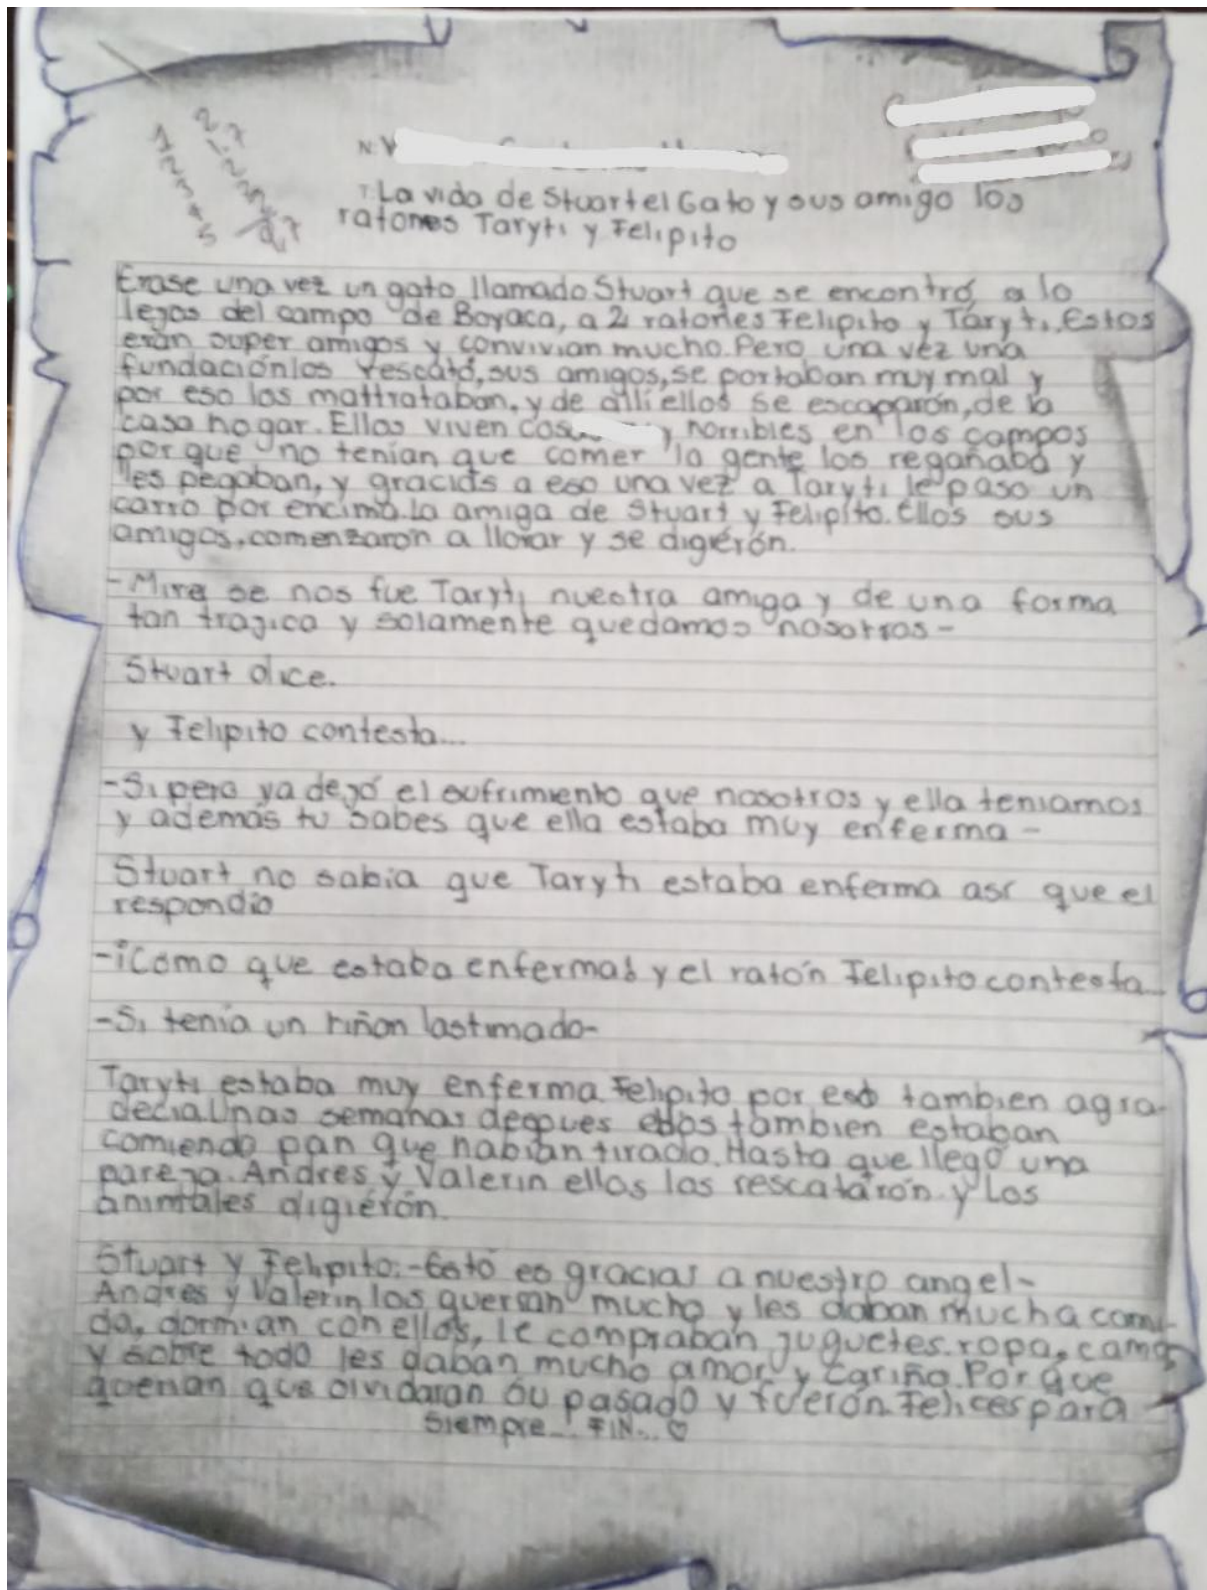 N:
T: La vida de Stuart el Gato y sus amigo los
ratones Taryti y Felipito
Erase una vez un gato llamado Stuart que se encontró, a lo
legos del campo de Boyaca, a 2 ratones Felipito y Taryti. Estos
eran super amigos y convivian mucho. Pero una vez una
fundaciónlos rescató, sus amigos, se portaban muy mal y
por eso los maltrataban, y de alli ellos se escaparón, de la
casa hogar. Ellos viven cosas y horribles en los campos
por que no tenian que comer la gente los regañaba y
les pegaban, y gracias a eso una vez a Taryti le paso un
carro por encima. La amiga de Stuart y Felipito. Ellos sus
amigos, comenzaron a llorar y se digierón.
-Mira se nos fue Taryti nuestra amiga y de una forma
tan tragica y solamente quedamos nosotros-
Stuart dice.
y Felipito contesta...
-Si pero ya dejó el sufrimiento que nosotros y ella teniamos
y además tu sabes que ella estaba muy enferma-
Stuart no sabia que Taryti estaba enferma asi que el
respondio
-¡Como que estaba enferma! y el ratón Felipito contesta...
-Si tenia un riñon lastimado-
Taryti estaba muy enferma Felipito por eso tambien agra-
decia. Unas semanas despues ellos tambien estaban
comiendo pan que habian tirado. Hasta que llegó una
pareja. Andres y Valerin ellos los rescatarón y Los
animales digierón.
Stuart y Felipito:-Esto es gracias a nuestro angel-
Andres y Valerin los querian mucho y les daban mucha comi-
da, dormian con ellos, le compraban juguetes, ropa, camas
y sobre todo les daban mucho amor y cariño. Por que
querian que olvidaran su pasado y fuerón Felices para
siempre... FIN... ♡